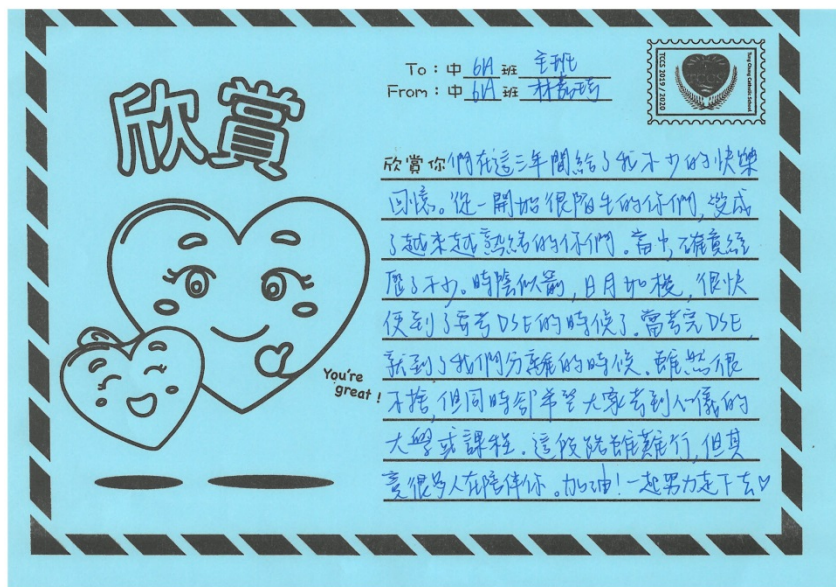 欣賞
To：中 6A 班 全班
From：中 6A 班 林
TCCS 2019 / 2020
Tang Chung Catholic School
TCCS
欣賞你們在這三年間給了我不少的快樂
回憶。從一開始很陌生的你們,變成
了越來越熟絡的你們。當中確實經
歷了不少。時陰似箭,日月如梭,很快
便到了要考DSE的時候了。當考完DSE,
就到了我們分離的時候。雖然很
不捨,但同時都希望大家考到心儀的
大學或課程。這段路雖難行,但其
竟很多人在陪伴你。加油!一起努力走下去♡
You're
great!